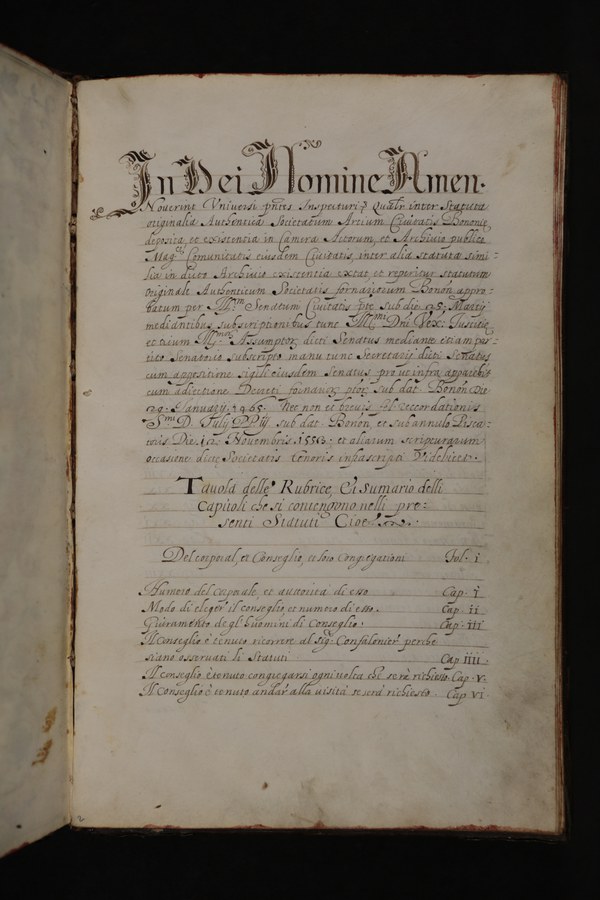 In Dei Nomine Amen.
Noverint Universi pntes Inspecturi, qualr inter Statuta
originalia Authentica Societatum Artium Civitatis Bononie,
deposita, et existentia in Camera Actorum, et Archivio publico
Mag.ce Comunitatis eiusdem Civitatis, inter alia statuta simi-
lia in dicto Archivio existentia extat, et reperitur statutum
originale Authenticum Societatis fornariorum Bonon. appro-
batum per Ill.m Senatum Civitatis pte sub die 25: Martij
mediantibus subscriptionibus tunc Ill.mi Dni Vex: Iustitie
et trium Assumptor dicti Senatus mediante etiam par-
tito Senatorio subscripto manu tunc Secretarij dicti Senatus
cum appositione sigili eiusdem Senatus prout infra apparebit
cum adiectione Decreti fornarior ptor sub dat Bonon Die
29. Ianuarij Nec non et brevis fel: reccordationis
S.mi D. Iulij PP. iij sub dat. Bonon, et sub annulo Pisca-
toris Die Novembris et aliarum scripturarum
occasione dicte Societatis tenoris infrascripti Videlicet.
Tavola delle Rubrice, et sumario delli
Capitoli che si contengono nelli pre-
senti Statuti Cioe
Del corporal, et Conseglio, et loro Congregationi Fol. i
Numero del corporale, et auttorita di esso Cap. i
Modo di eleger il conseglio, et numero di esso. Cap. ii
Giuramento degl'huomini di Conseglio. Cap. iii
Il Conseglio è tenuto ricorrere al Sig. Confalonier perche
siano osservati li Statuti Cap iiii
Il conseglio è tenuto congregarsi ogni volta che serà richiesto Cap. v.
Il Conseglio è tenuto andar alla visita se serà richiesto. Cap vi